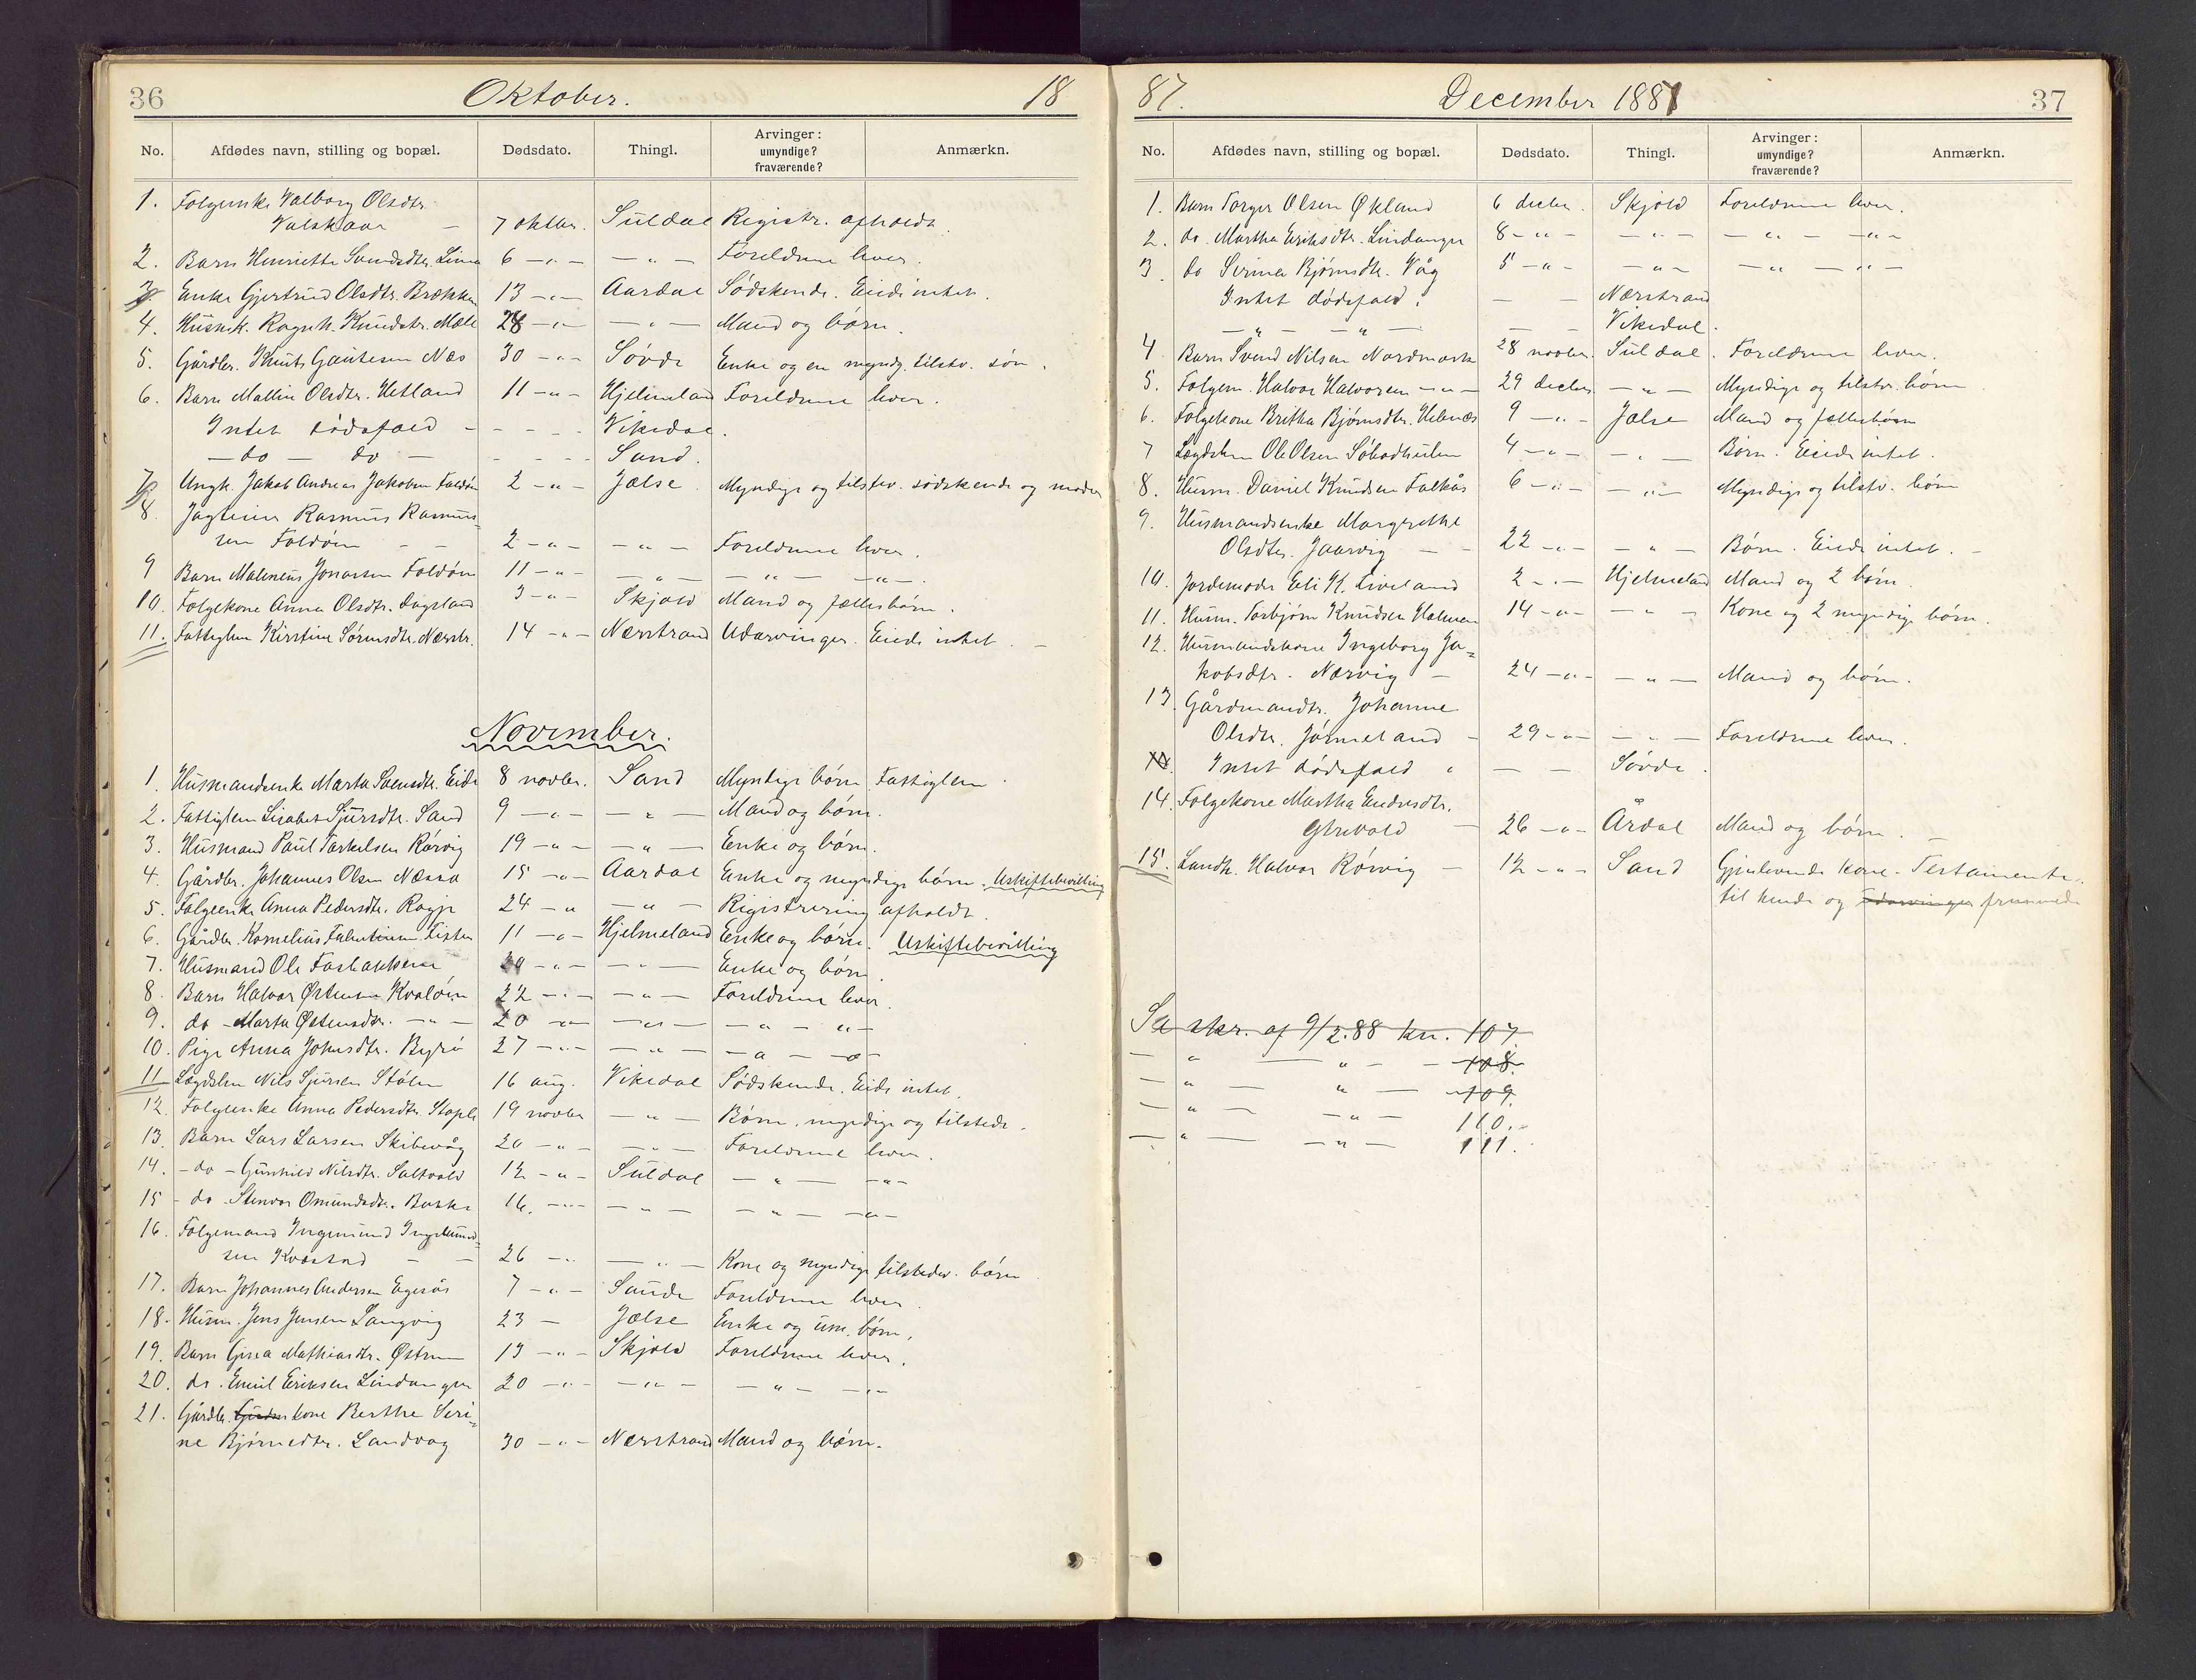 36 Oktober. 18
No. Afdødes navn, stilling og bopæl. Dødsdato. Thingl. Arvinger: umyndige? fraværende? Anmærkn.
1. Folgeenke Valborg Olsdtr.
Valskaar — 7 oktbr. Suldal Registr. afholdt.
2. Barn Henriette Svendsdtr. Linna 6 —"— —"— Forældrene lever.
3. Enke Gjertrud Olsdtr. Brækken 13 —"— Aardal Sødskende. Eiede intet.
4. Husmk. Ragnh. Knudsdtr. Mæle 28 —"— —"— Mand og børn.
5. Gårdbr. Knut Gautesen Næs 30 —"— Søvde Enke og en myndg. tilstv. søn.
6. Barn Mallin Olsdtr. Hetland 11 —"— Hjelmeland Forældrene lever.
Intet dødsfald - - - - Vikedal.
— do — do — - - - Sand.
7. Ungk. Jakob Andreas Jakobsen Foldøen 2 —"— Jælse Myndige og tilstev. sødskende og moder
8. Jagteier Rasmus Rasmus-
sen Foldøen - - 2 —"— —"— Forældrene lever.
9 Barn Maleneus Jonassen Foldøen 11 —"— —"— —"— —"—.
10. Folgekone Anna Olsdtr. Dagsland 3 —"— Skjold Mand og fællesbørn.
11. Fattiglem Kirstine Sørensdtr. Nærstr. 14 —"— Nærstrand Udarvinger. Eiede intet. —
November.
1. Husmandsenke Marta Svensdtr. Eide 8 novbr. Sand Myndige børn Fattiglem.
2. Fattiglem Lisabet Sjursdtr. Sand 9 —"— —"— Mand og børn.
3. Husmand Paul Torkelsen Rørvig 19 —"— —"— Enke og børn.
4. Gårdbr. Johannes Olsen Næssa 15 —"— Aardal Enke og myndige børn. Uskiftebevilling
5. Folgeenke Anna Pedersdtr. Ragje 24 —" —"— Registrering afholdt.
6. Gårdbr. Kornelius Tister 11 —"— Hjelmeland Enke og børn. Uskiftebevilling
7. Husmand Ole —"— —"— Enke og børn.
8. Barn Halvor Østensen Kvaløen 22 —"— —"— Forældrene lever.
9. do — Marta Østensdtr. —"— 20 —"— —"— —"— "—
10. Pige Anna Johnsdtr. Byrø 27 —"— —"— —"— —"—
11. Lægdslem Nils Sjursen Stølen 16 aug. Vikedal Sødskende. Eiede intet.
12. Folgeenke Anna Pedersdtr. Stople 19 novbr —"— Børn, myndige og tilstede.
13. Barn Lars Larsen Skibevåg 20 —"— —"— Forældrene lever.
14. — do — Gunhild Nilsdtr. 12 —"— Suldal —"— —"—
15 — do — Stenvor Omundsdtr. Bakke 16. —"— —"— —"— —"—
16. Folgemand Ingemund Ingemund-
sen Kvæstad — — 26 —"— —"— Kone og myndige tilstedev. børn
17. Barn Johannes Andersen Egerås 7 —"— Saude Forældrene lever.
18. Husm. Jens Jensen Langvig 23 — Jælse Enke og um. børn.
19. Barn Gisea Mathiasdtr. Østrem 13 —"— Skjold Forældrene lever.
20. do. Emil Eriksen Lindanger 20 —"— —"— —"— —"—
21. Gårdbr. kone Berthe Seri-
ne Bjørnsdtr. Landvag 30 —"— Nærstrand Mand og børn.
87. December 1887 37
No. Afdødes navn, stilling og bopæl. Dødsdato. Thingl. Arvinger: umyndige? fraværende? Anmærkn.
1. Barn Torger Olsen Økland 6 decbr. Skjold Forældrene lever.
2. do. Martha Eriksdtr. Lindanger 8 —"— —"— —"— —"—
3 do Serina Bjørnsdtr. Våg 5 —"— —"— —"— "—
Intet dødsfald. — — Nærstrand
—"— —"— — — Vikedal.
4 Barn Svend Nilsen Nordmork 28 novbr. Suldal. Forældrene lever.
5. Folgem. Halvor Halvorsen —"— 29 decbr. —"— Myndige og tilstev. børn
6. Folgekone Britha Bjørnsdtr. Helenæs 9 —"— Jælse Mand og fællesbørn
7 Lægdslem Ole Olsen 4 —"— —"— Børn. Eiede intet.
8. Husm. Daniel Knudsen Falkås 6 —"— —"— Myndige og tilstv. børn
9. Husmandsenke Margrethe
Olsdtr. Jaarvig — - 22 —"— —"— Børn. Eiede intet. —
10. Jordemoder Eli K. Tiveland 2 —"— Hjelmeland Mand og 2 børn.
11. Husm. Torbjørn Knudsen Holmen 14 —"— —"— Kone og 2 myndige børn.
12. Husmandskone Ingeborg Ja-
kobsdtr. Nærvig — 24 —"— —"— Mand og børn.
13. Gårdmandsdtr. Johanne
Olsdtr. Jøsneland - 29 —"— —"— Forældrene lever.
Intet dødsfald " — — Søvde.
14. Folgekone Martha Endresdtr.
— 26 —"— Årdal Mand og børn. —
15. Landh. Halvor Rørvig — 12 —"— Sand Gjenlevende kone. Testamente
til hende og Udarvinger
Se skr. af 9/2.88 kn. 107
— " — " — — 108.
— " — " — — 109.
— " — —"— 110.
— " — —"— 111.